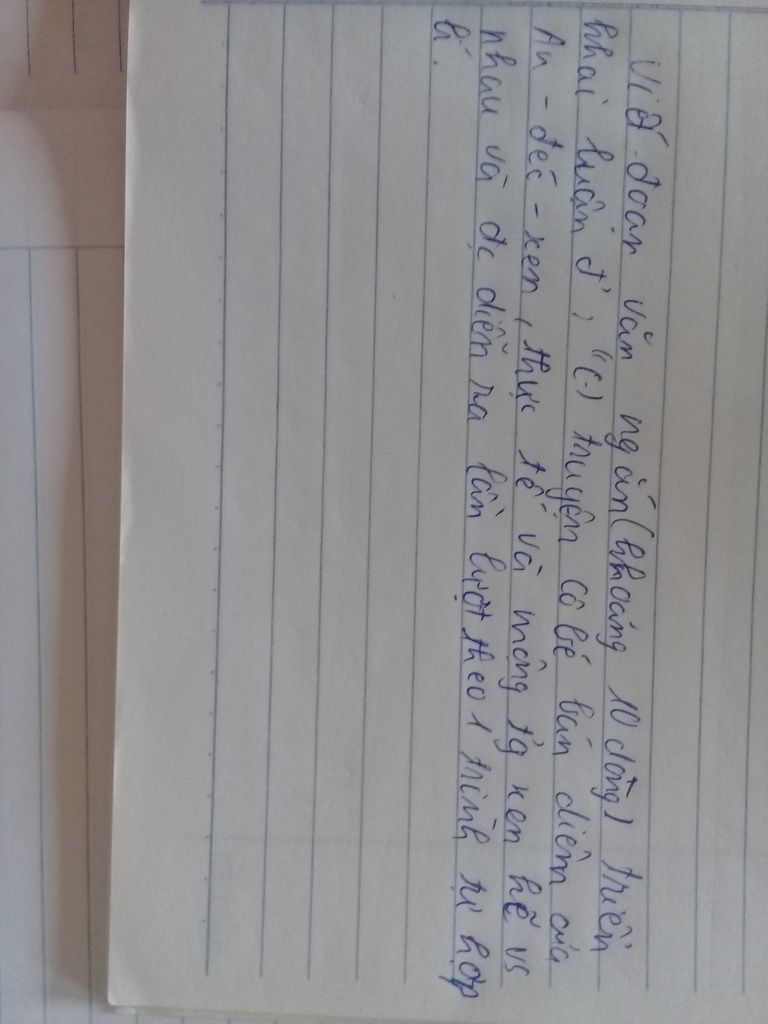 Viết đoan văn ngắn (khoảng 10 dòng) triển
khai luận đ', "(-) truyện cô bé bán diêm của
An - đéc - xen, thực tế và mộng tg xen kẽ vs
nhau và đc diễn ra lần lượt theo 1 trình tự hợp
lí.